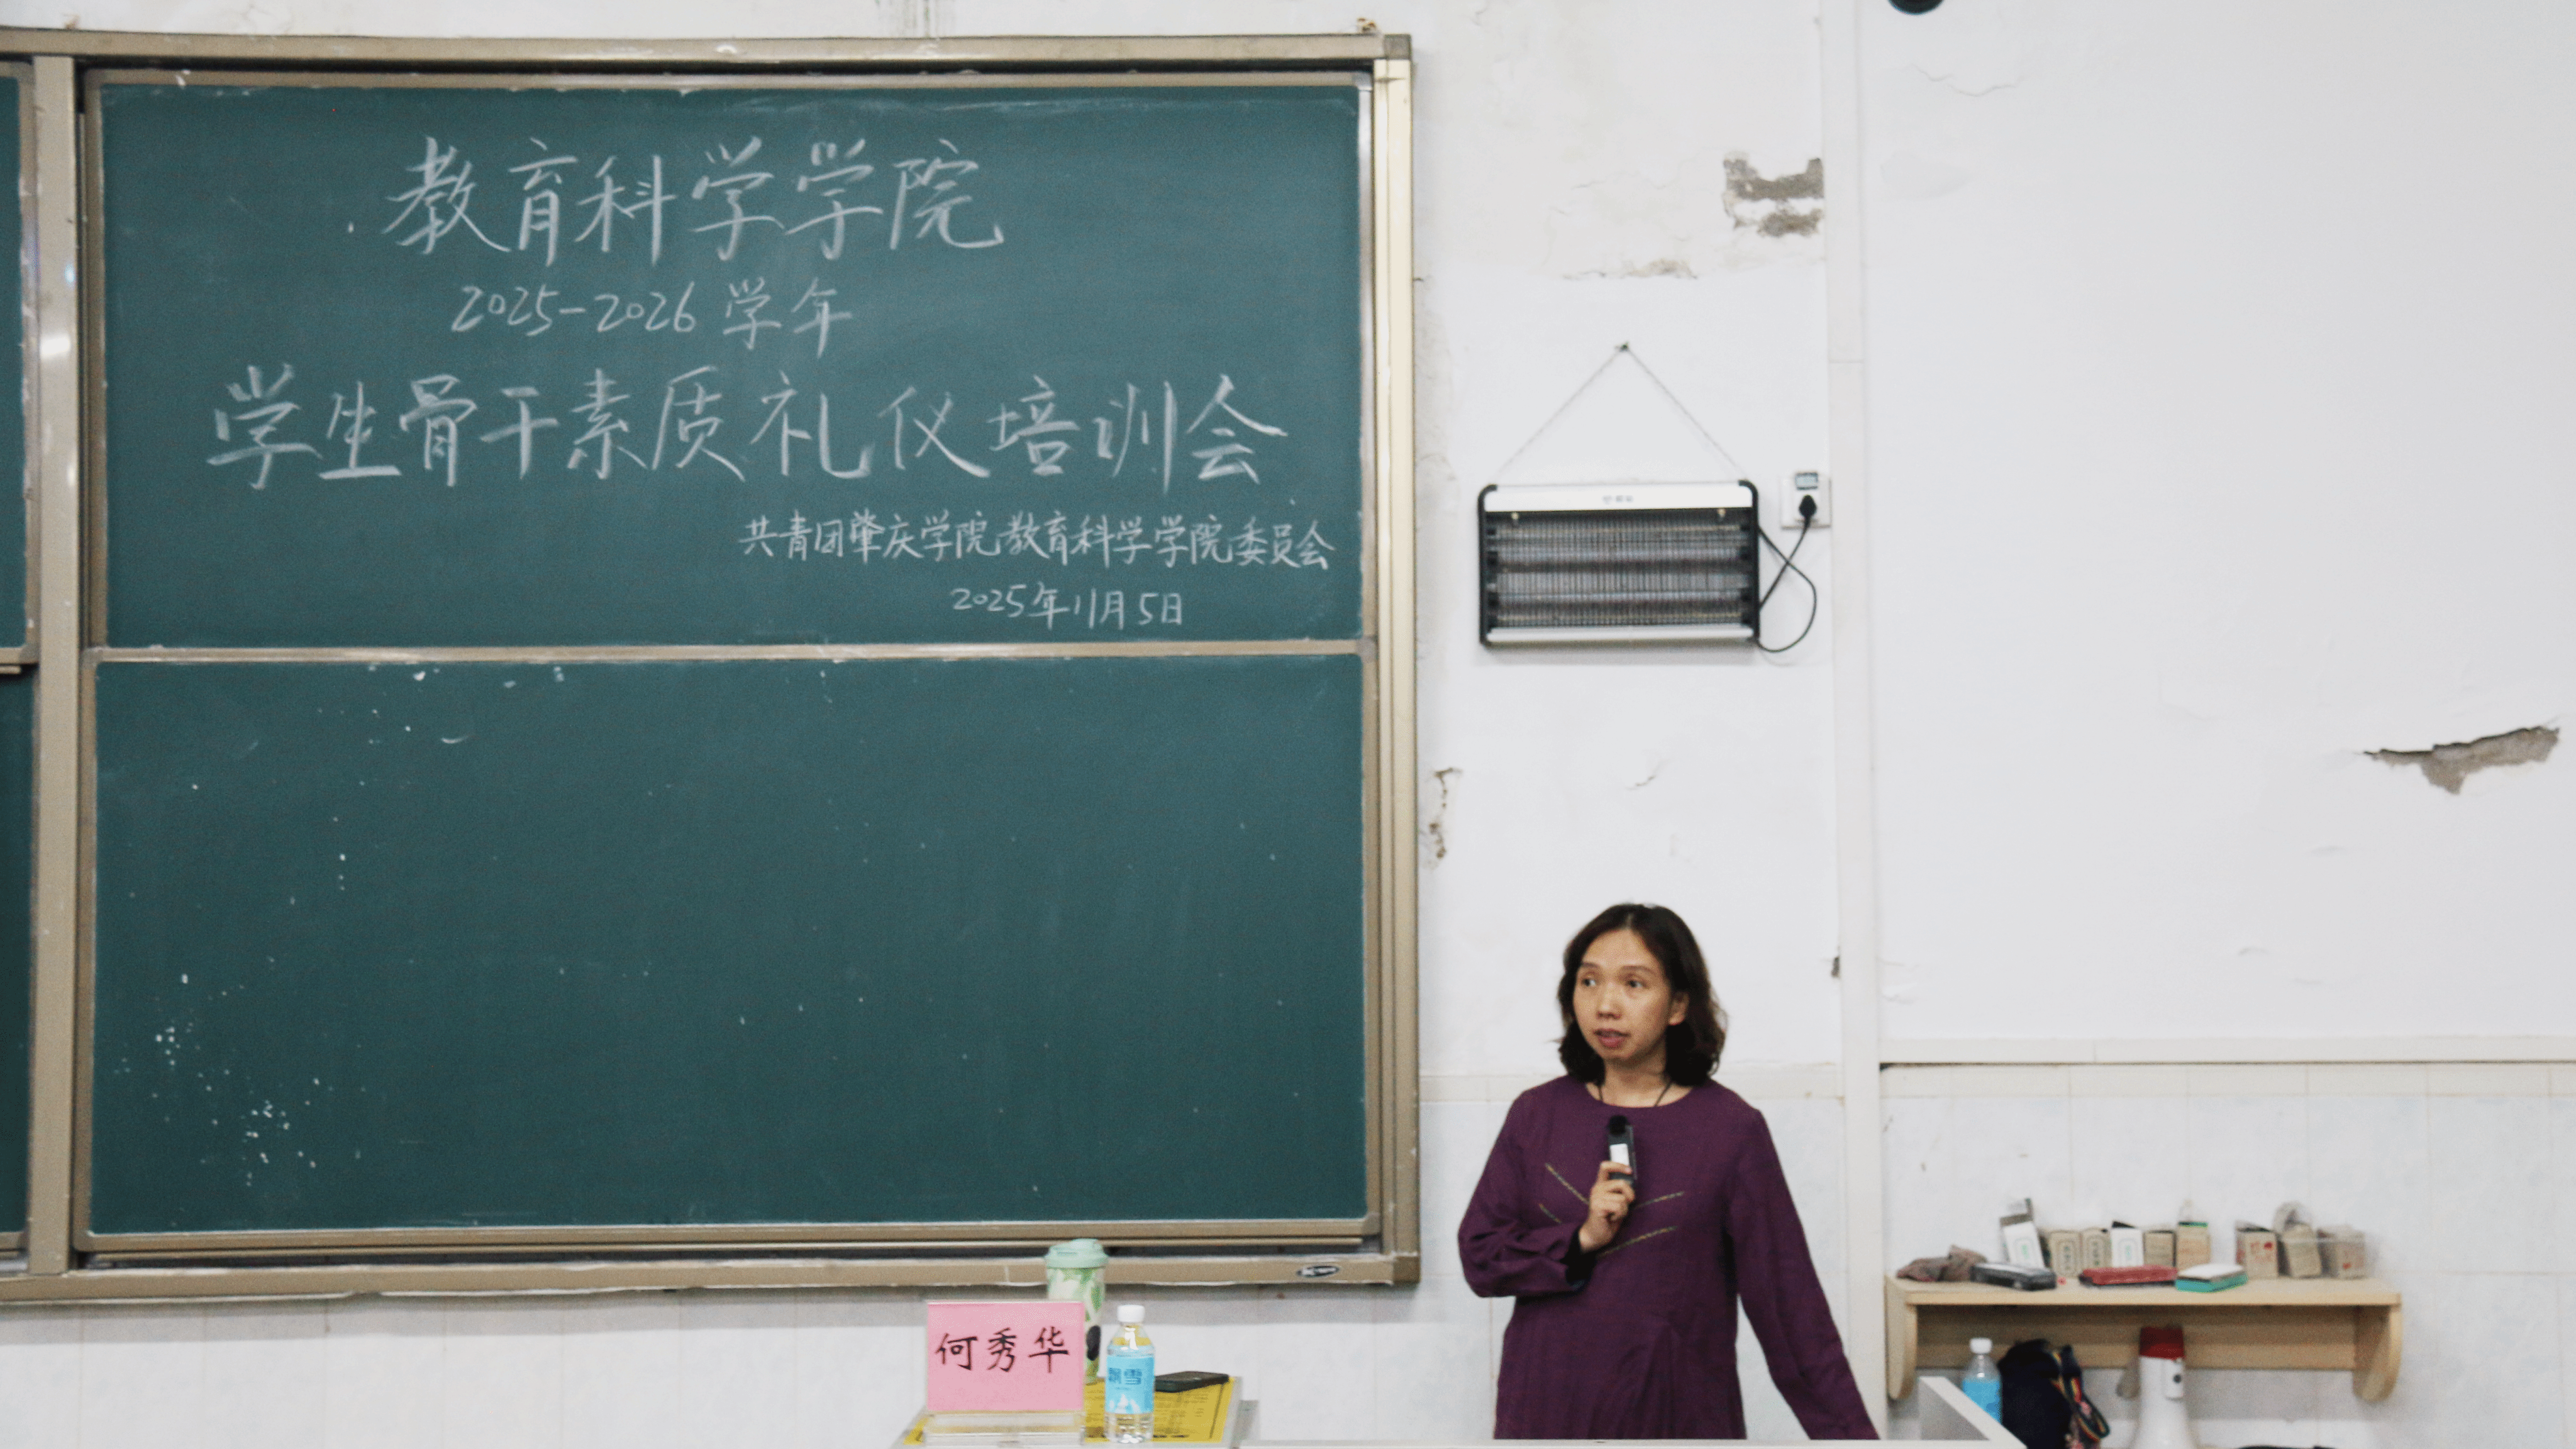 教育科学学院
2025-2026学年
学生骨干素质礼仪培训会
共青团肇庆学院教育科学学院委员会
2025年11月5日
何秀华
飘雪